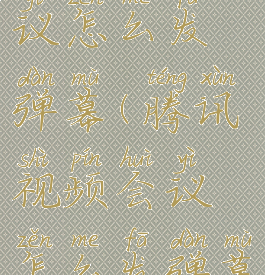 yì zěn me fā
议怎么发
dàn mù téng xùn
弹幕(腾讯
shì pín huì yì
视频会议
zěn me fā dàn mù
怎么发弹幕